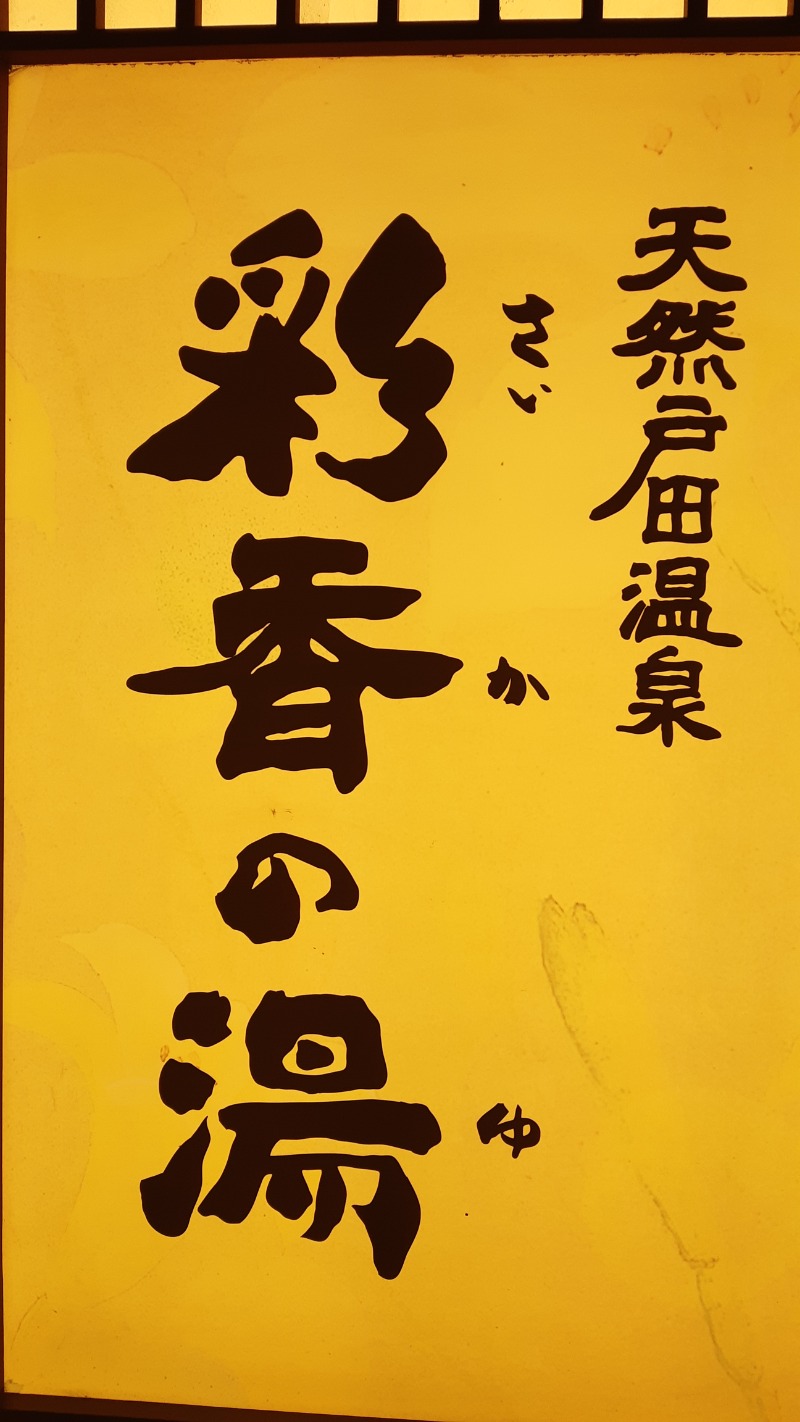 天然戸田温泉
さい か ゆ
彩香の湯